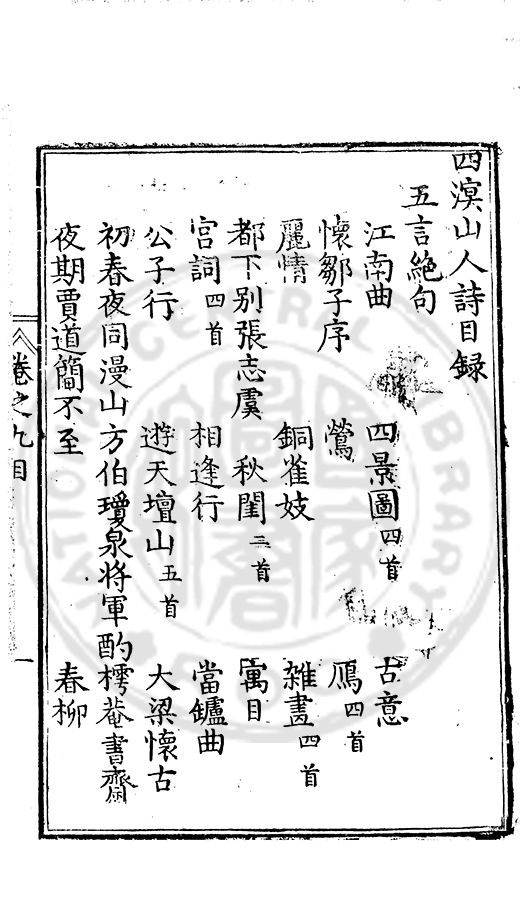 四溟山人詩目録
五言絶句
江南曲 四景圖四首 古意
懷鄒子序 鶯 鴈四首
麗情 銅雀妓 雑畫四首
都下别張志虞 秋閨三首 寓目
宫詞四首 相逢行 當鑪曲
公子行 遊天壇山五首 大梁懷古
初春夜同漫山方伯瓊泉將軍酌樗菴書齋
夜期賈道簡不至 春柳
卷之九目 一